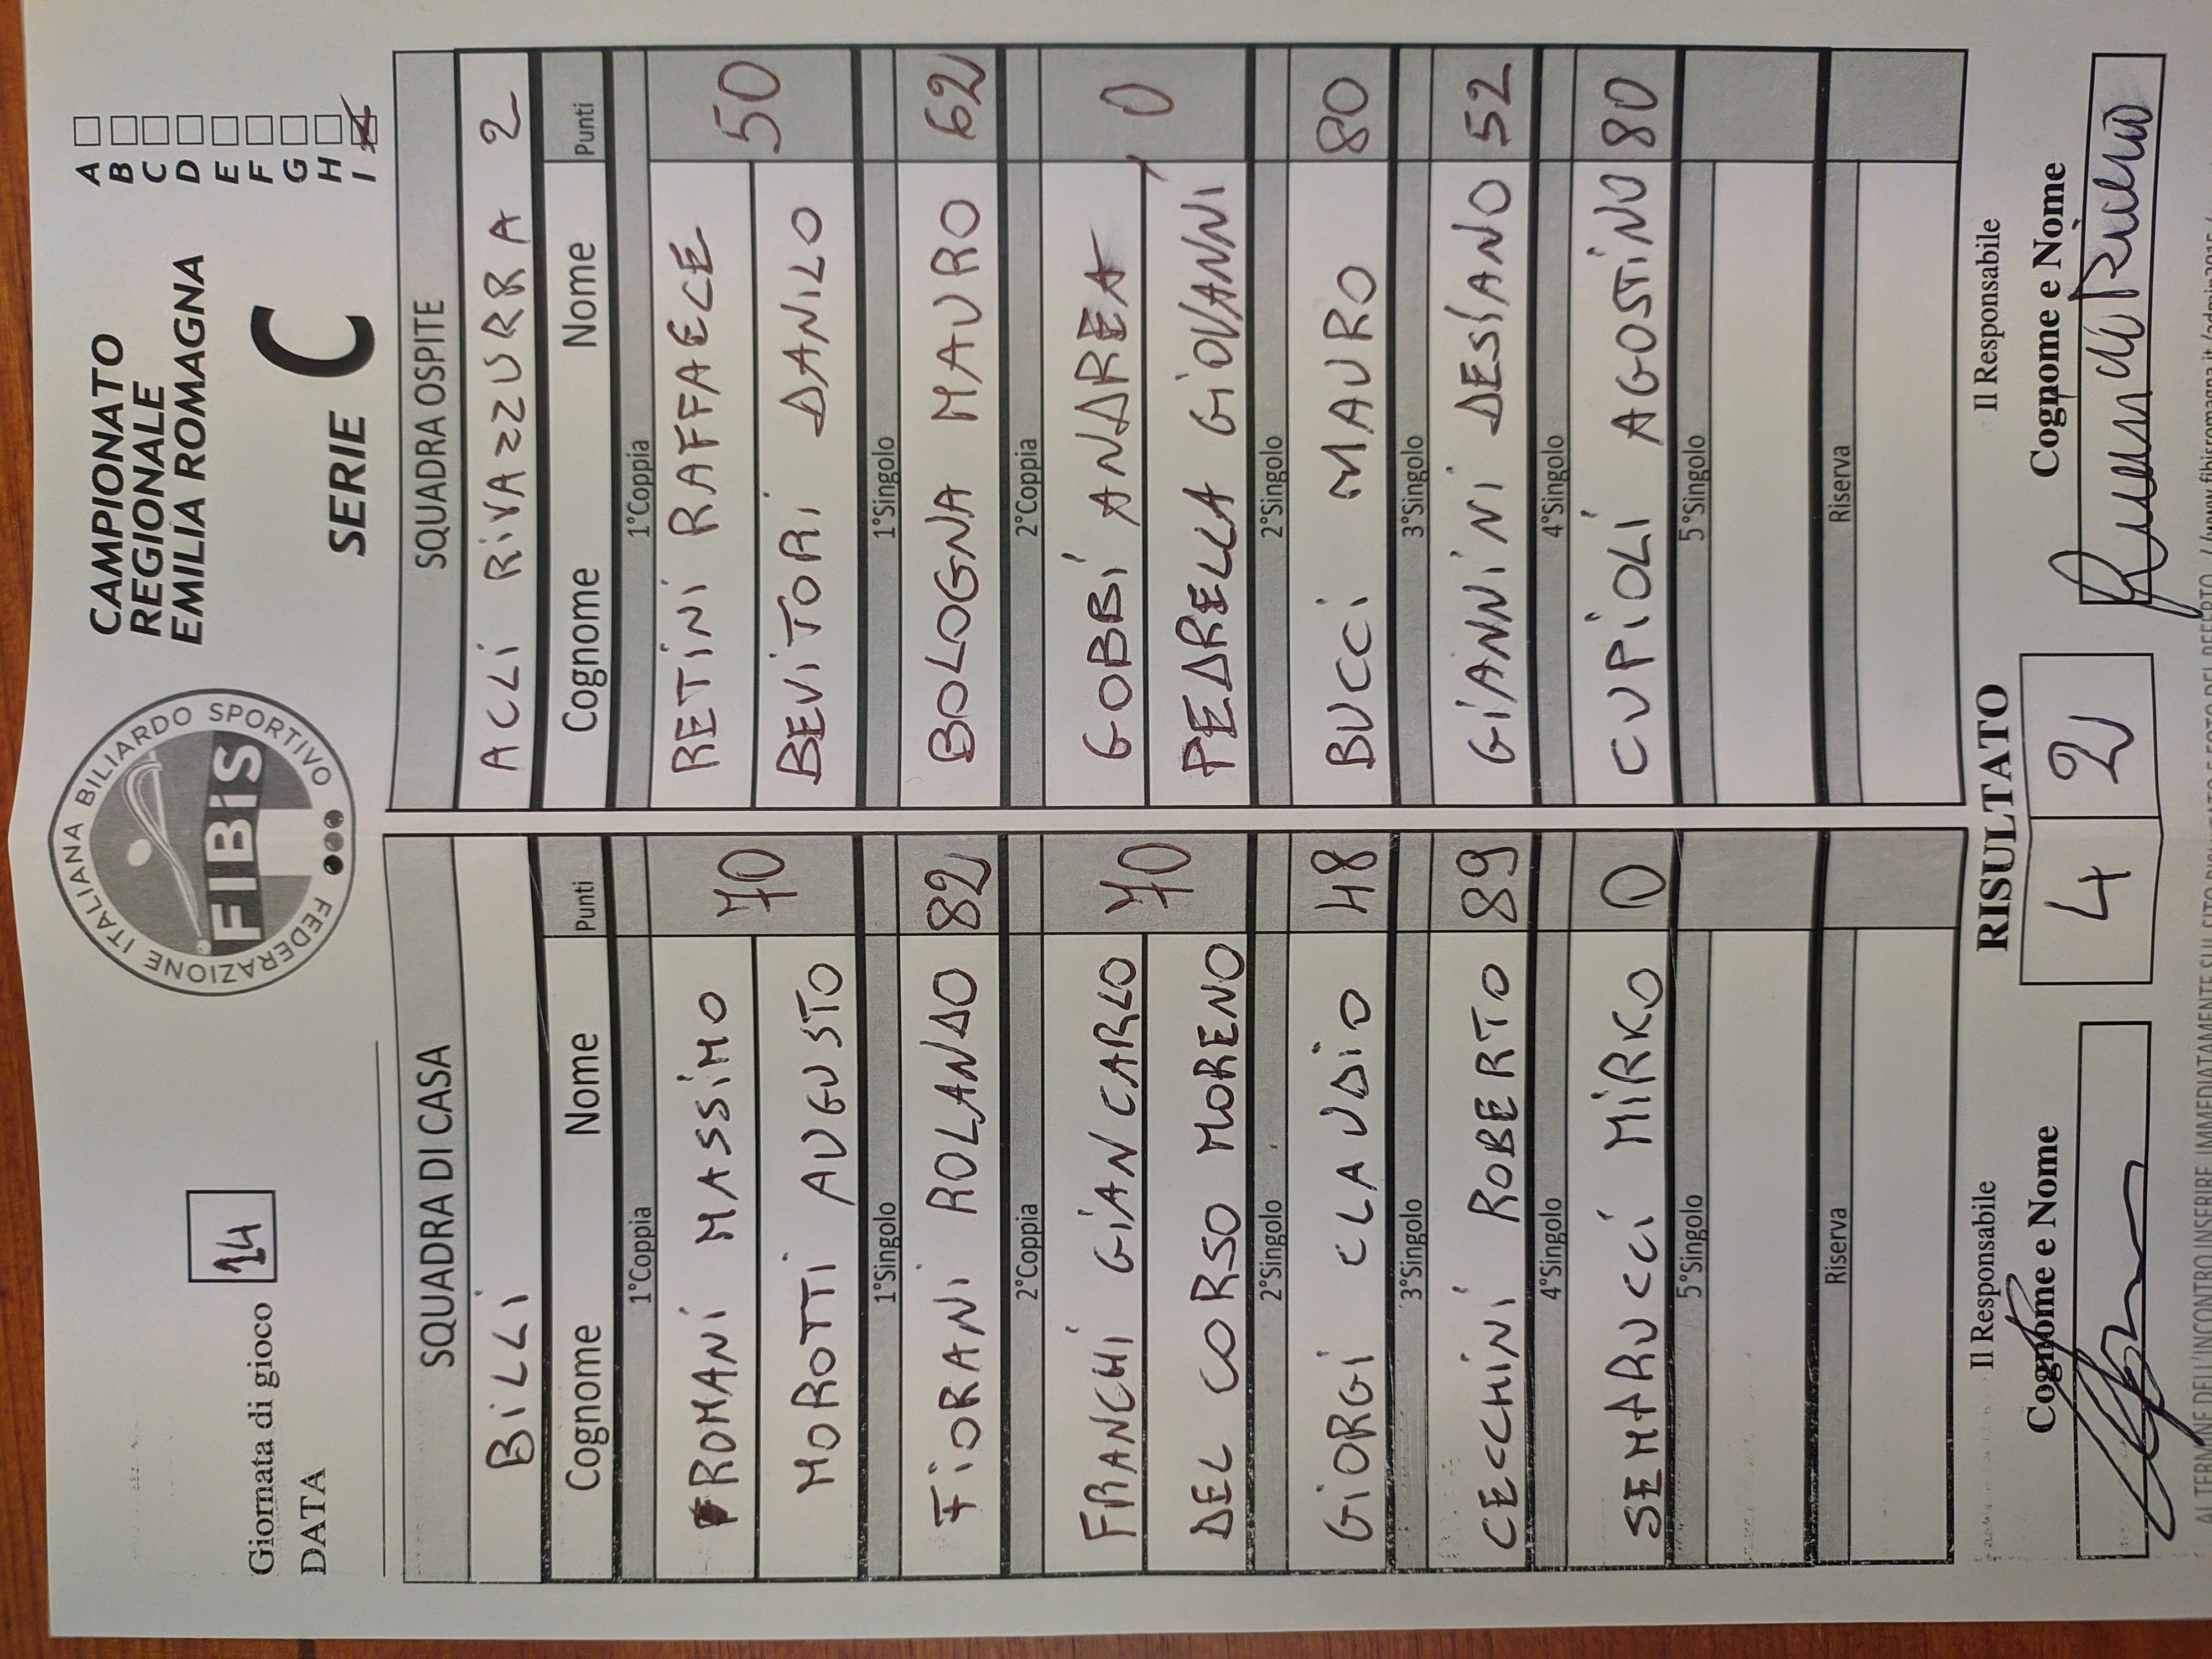 Giornata di gioco 14
DATA
FEDERAZIONE ITALIANA BILIARDO SPORTIVO
FIBiS
CAMPIONATO
REGIONALE
EMILIA ROMAGNA
SERIE C
A
B
C
D
E
F
G
H
I
SQUADRA DI CASA
BiLLi
Cognome Nome Punti
1°Coppia
ROMANi MASSiMO 70
MOROTTi AUGUSTO
1°Singolo
FiORANi ROLANDO 82
2°Coppia
FRANCHi GiANCARLO 70
DEL CORSO MORENO
2°Singolo
GiORGi CLAUDiO 48
3°Singolo
CECCHiNi ROBERTO 89
4°Singolo
SEMARUCCi MiRKO 0
5°Singolo
Riserva
SQUADRA OSPITE
ACLi RiVAZZURRA 2
Cognome Nome Punti
1°Coppia
RETiNi RAFFAELE 50
BEViTORi DANiLO
1°Singolo
BOLOGNA MAURO 62
2°Coppia
GOBBi ANDREA 0
PEDRELLA GiOVANNi
2°Singolo
BUCCi MAURO 80
3°Singolo
GiANNiNi DESiANO 52
4°Singolo
CUPiOLi AGOSTiNO 80
5°Singolo
Riserva
Il Responsabile
Cognome e Nome
RISULTATO
4 2
Il Responsabile
Cognome e Nome